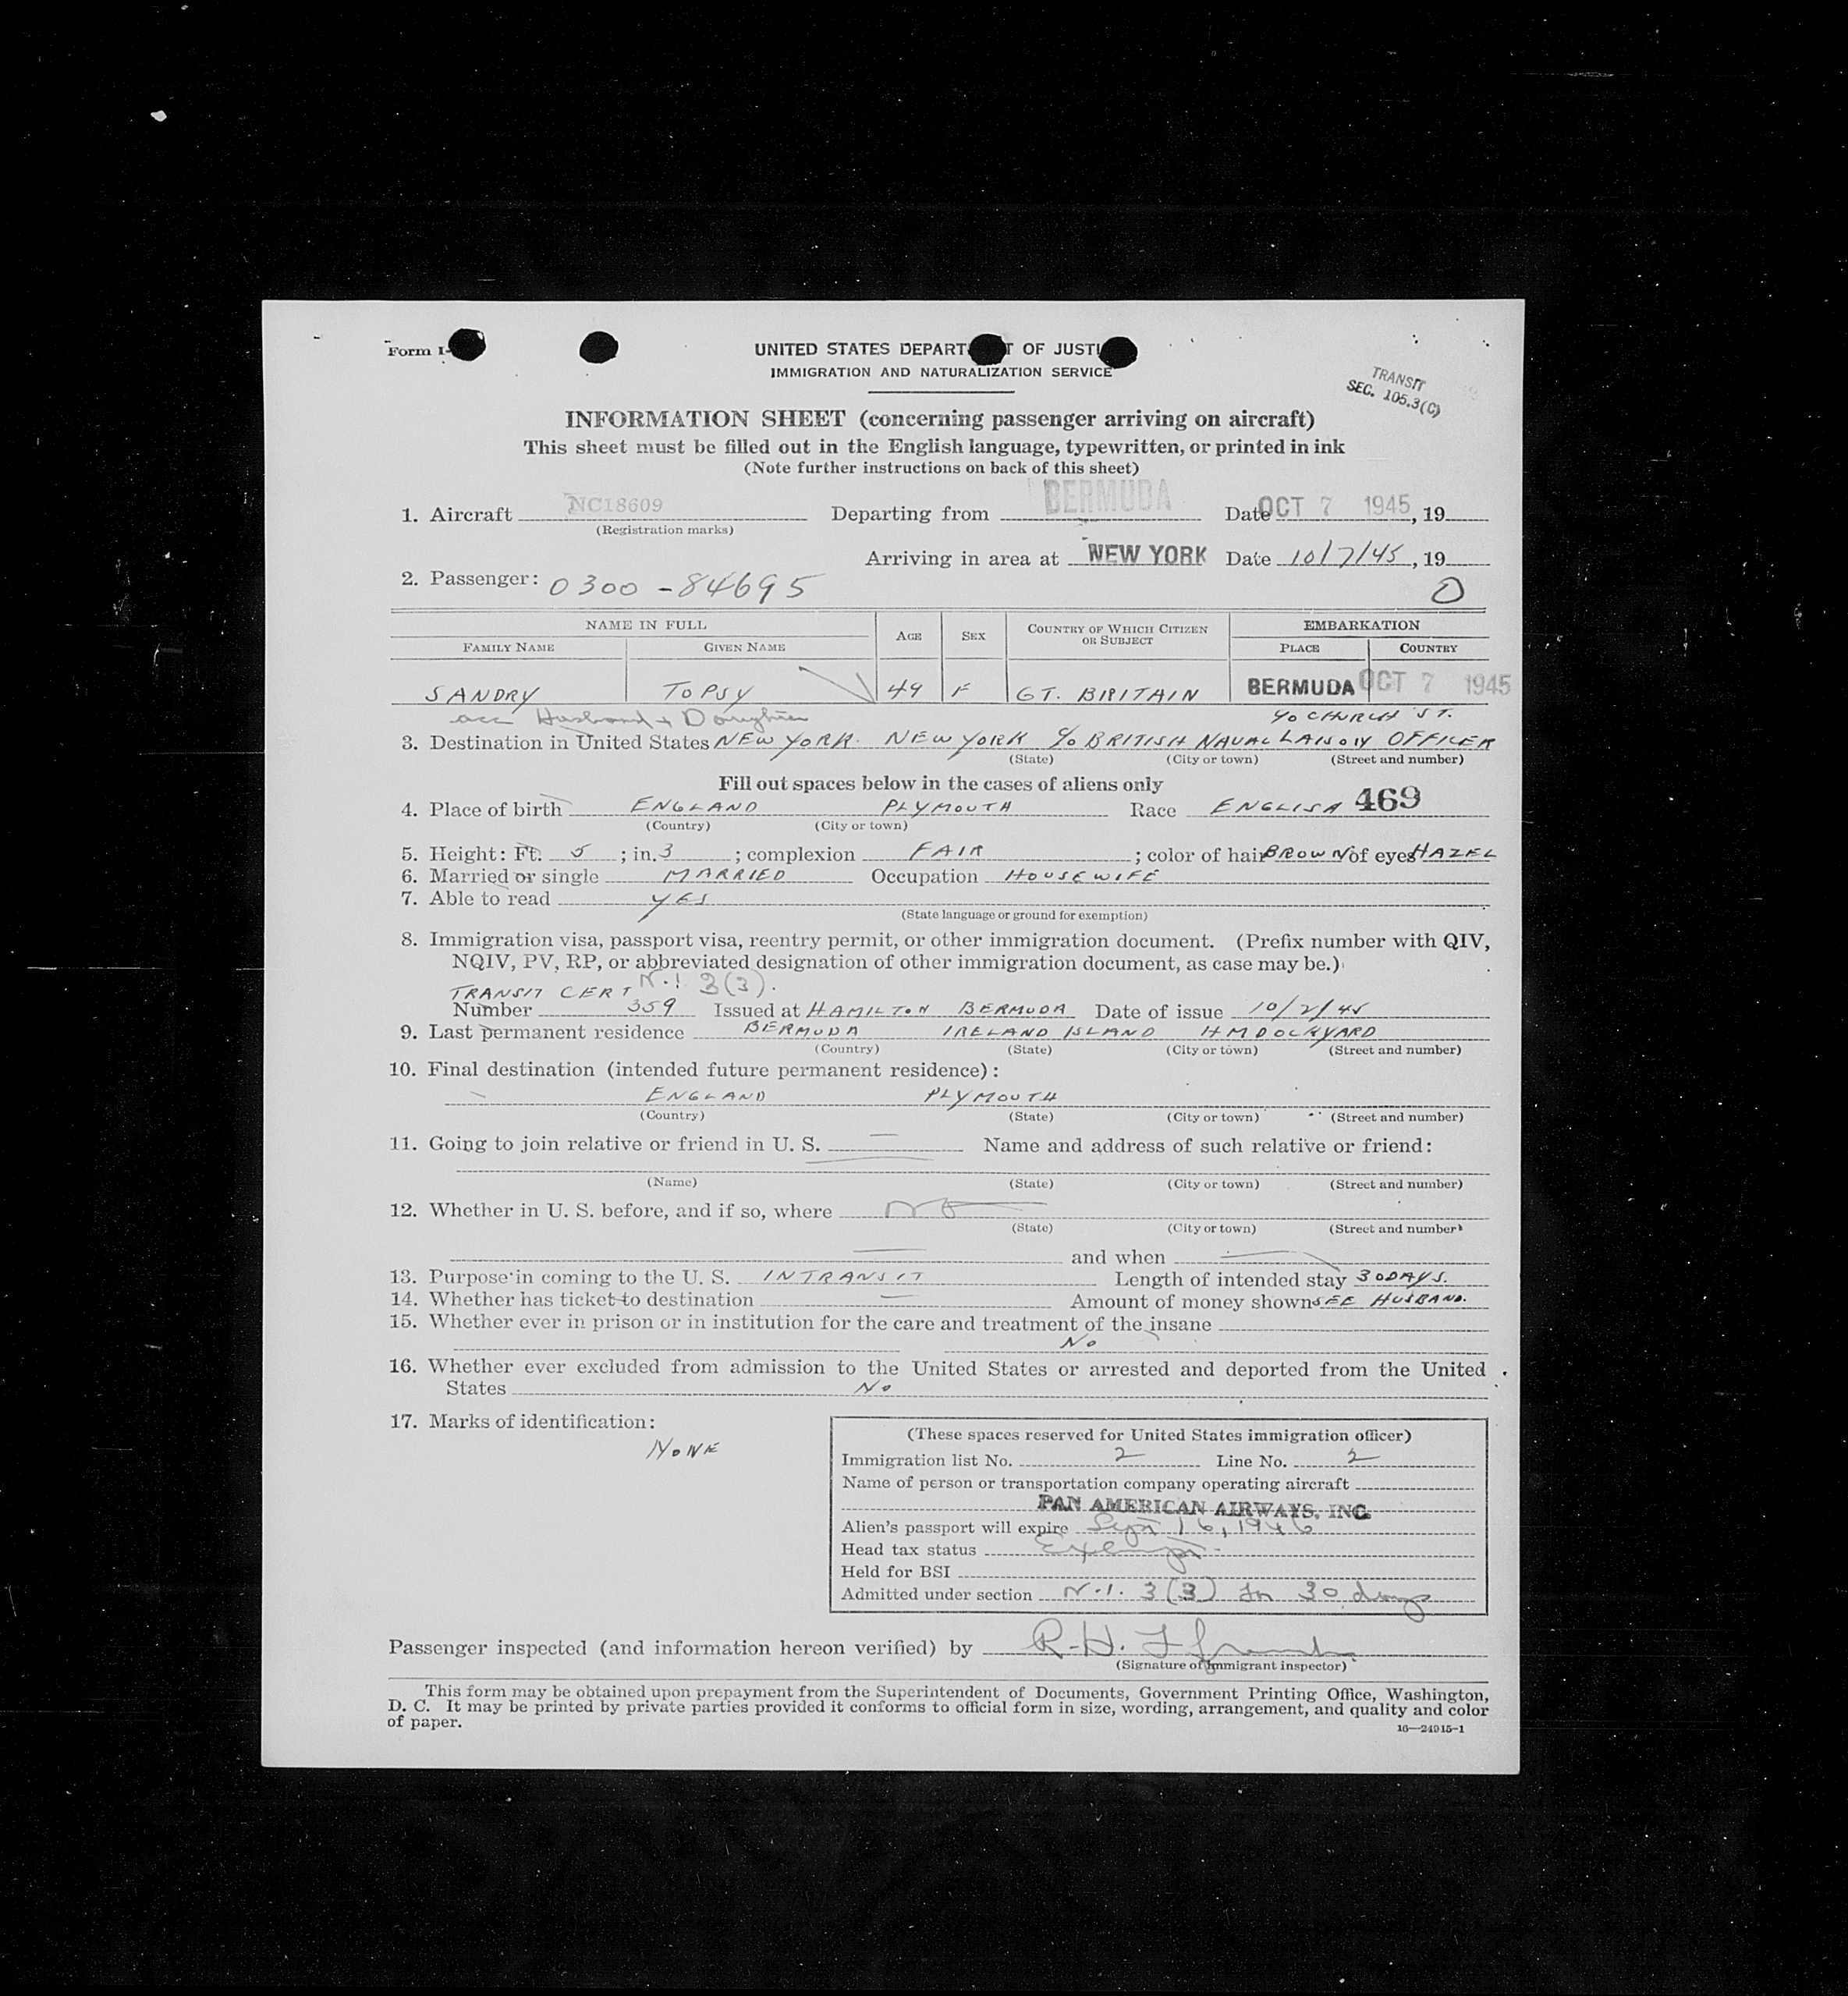 Form I-
UNITED STATES DEPART T OF JUSTI
IMMIGRATION AND NATURALIZATION SERVICE
TRANSIT
SEC. 105.3(C)
INFORMATION SHEET (concerning passenger arriving on aircraft)
This sheet must be filled out in the English language, typewritten, or printed in ink
(Note further instructions on back of this sheet)
1. Aircraft NC18609 Departing from BERMUDA Date OCT 7 1945, 19
(Registration marks)
Arriving in area at NEW YORK Date 10/7/45, 19
2. Passenger: 0300-84695 0
NAME IN FULL AGE SEX COUNTRY OF WHICH CITIZEN OR SUBJECT EMBARKATION
FAMILY NAME GIVEN NAME PLACE COUNTRY
SANDRY TOPSY 49 F GT. BRITAIN BERMUDA OCT 7 1945
acc Husband + Daughter 90 CHURCH ST.
3. Destination in United States NEW YORK NEW YORK C/O BRITISH NAVAL LAISON OFFICER
(State) (City or town) (Street and number)
Fill out spaces below in the cases of aliens only
4. Place of birth ENGLAND PLYMOUTH Race ENGLISH 469
(Country) (City or town)
5. Height: Ft. 5; in. 3; complexion FAIR; color of hair BROWN of eyes HAZEL
6. Married or single MARRIED Occupation HOUSEWIFE
7. Able to read YES
(State language or ground for exemption)
8. Immigration visa, passport visa, reentry permit, or other immigration document. (Prefix number with QIV,
NQIV, PV, RP, or abbreviated designation of other immigration document, as case may be.)
TRANSIT CERT N.I 3(3).
Number 359 Issued at HAMILTON BERMUDA Date of issue 10/2/45
9. Last permanent residence BERMUDA IRELAND ISLAND HM DOCKYARD
(Country) (State) (City or town) (Street and number)
10. Final destination (intended future permanent residence):
ENGLAND PLYMOUTH
(Country) (State) (City or town) (Street and number)
11. Going to join relative or friend in U. S. — Name and address of such relative or friend:
(Name) (State) (City or town) (Street and number)
12. Whether in U. S. before, and if so, where NO
(State) (City or town) (Street and number)
— and when —
13. Purpose in coming to the U. S. INTRANSIT Length of intended stay 30 DAYS.
14. Whether has ticket to destination — Amount of money shown SEE HUSBAND.
15. Whether ever in prison or in institution for the care and treatment of the insane
No
16. Whether ever excluded from admission to the United States or arrested and deported from the United
States No
17. Marks of identification:
NONE
(These spaces reserved for United States immigration officer)
Immigration list No. 2 Line No. 2
Name of person or transportation company operating aircraft
PAN AMERICAN AIRWAYS, INC.
Alien's passport will expire Sept 16, 1946
Head tax status Exempt
Held for BSI
Admitted under section N.I. 3(3) for 30 days
Passenger inspected (and information hereon verified) by R.H.
(Signature of immigrant inspector)
This form may be obtained upon prepayment from the Superintendent of Documents, Government Printing Office, Washington,
D. C. It may be printed by private parties provided it conforms to official form in size, wording, arrangement, and quality and color
of paper.
16—24915-1